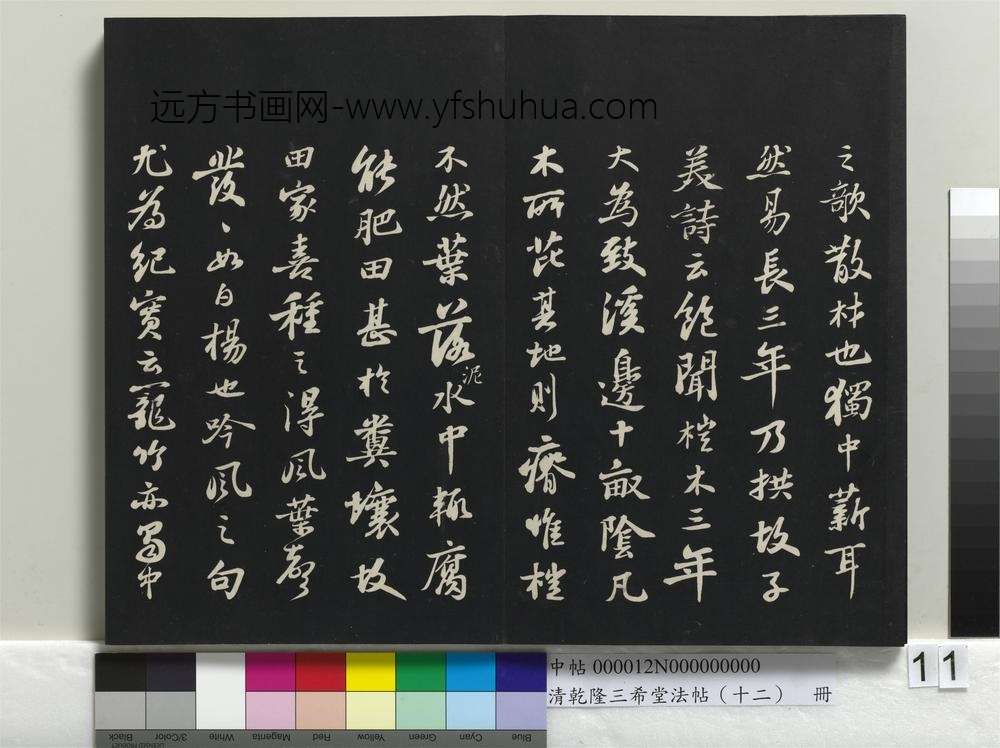 远方书画网-www.yfshuhua.com
之歌散材也獨中薪耳
然易長三年乃拱故子
美詩云飽聞榿木三年
大為致溪邊十畝陰凡
木所芘其地則瘠惟榿
不然葉落泥水中輒腐
能肥田甚於糞壤故
田家喜種之得風葉聲
發〻如白楊也吟風之句
尤為紀實云籠竹亦蜀中
中帖 000012N000000000
清乾隆三希堂法帖（十二） 冊
11
Black
3/Color
White
Magenta
Red
Yellow
Green
Cyan
Blue